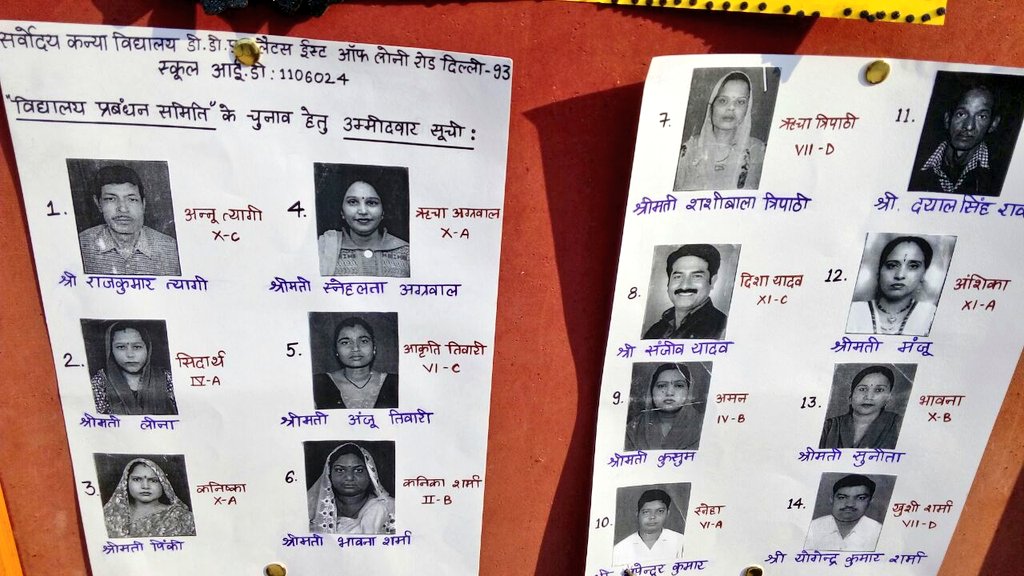 सर्वोदय कन्या विद्यालय डी.डी.ए. फ्लैटस ईस्ट ऑफ लोनी रोड दिल्ली-93
स्कूल आई.डी: 1106024
"विद्यालय प्रबंधन समिति" के चुनाव हेतु उम्मीदवार सूची :
1. अन्नू त्यागी
X-C
श्री राजकुमार त्यागी
2. सिदार्थ
IV-A
श्रीमती लीना
3. कनिष्का
X-A
श्रीमती पिंकी
4. ऋचा अग्रवाल
X-A
श्रीमती स्नेहलता अग्रवाल
5. आकृति तिवारी
VI-C
श्रीमती अंजू तिवारी
6. कनिका शर्मा
II-B
श्रीमती भावना शर्मा
7. ऋचा त्रिपाठी
VII-D
श्रीमती शशीबाला त्रिपाठी
8. दिशा यादव
XI-C
श्री संजीव यादव
9. अमन
IV-B
श्रीमती कुसुम
10. स्नेहा
VI-A
कुमार
11.
श्री. दयाल सिंह
12. अंशिका
XI-A
श्रीमती मंजू
13. भावना
X-B
श्रीमती सुनीता
14. खुशी शर्मा
VII-D
श्री योगेन्द्र कुमार शर्मा